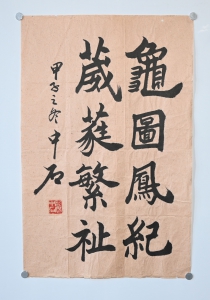 龜圖鳳紀
葳蕤繁祉
甲子之冬 中石